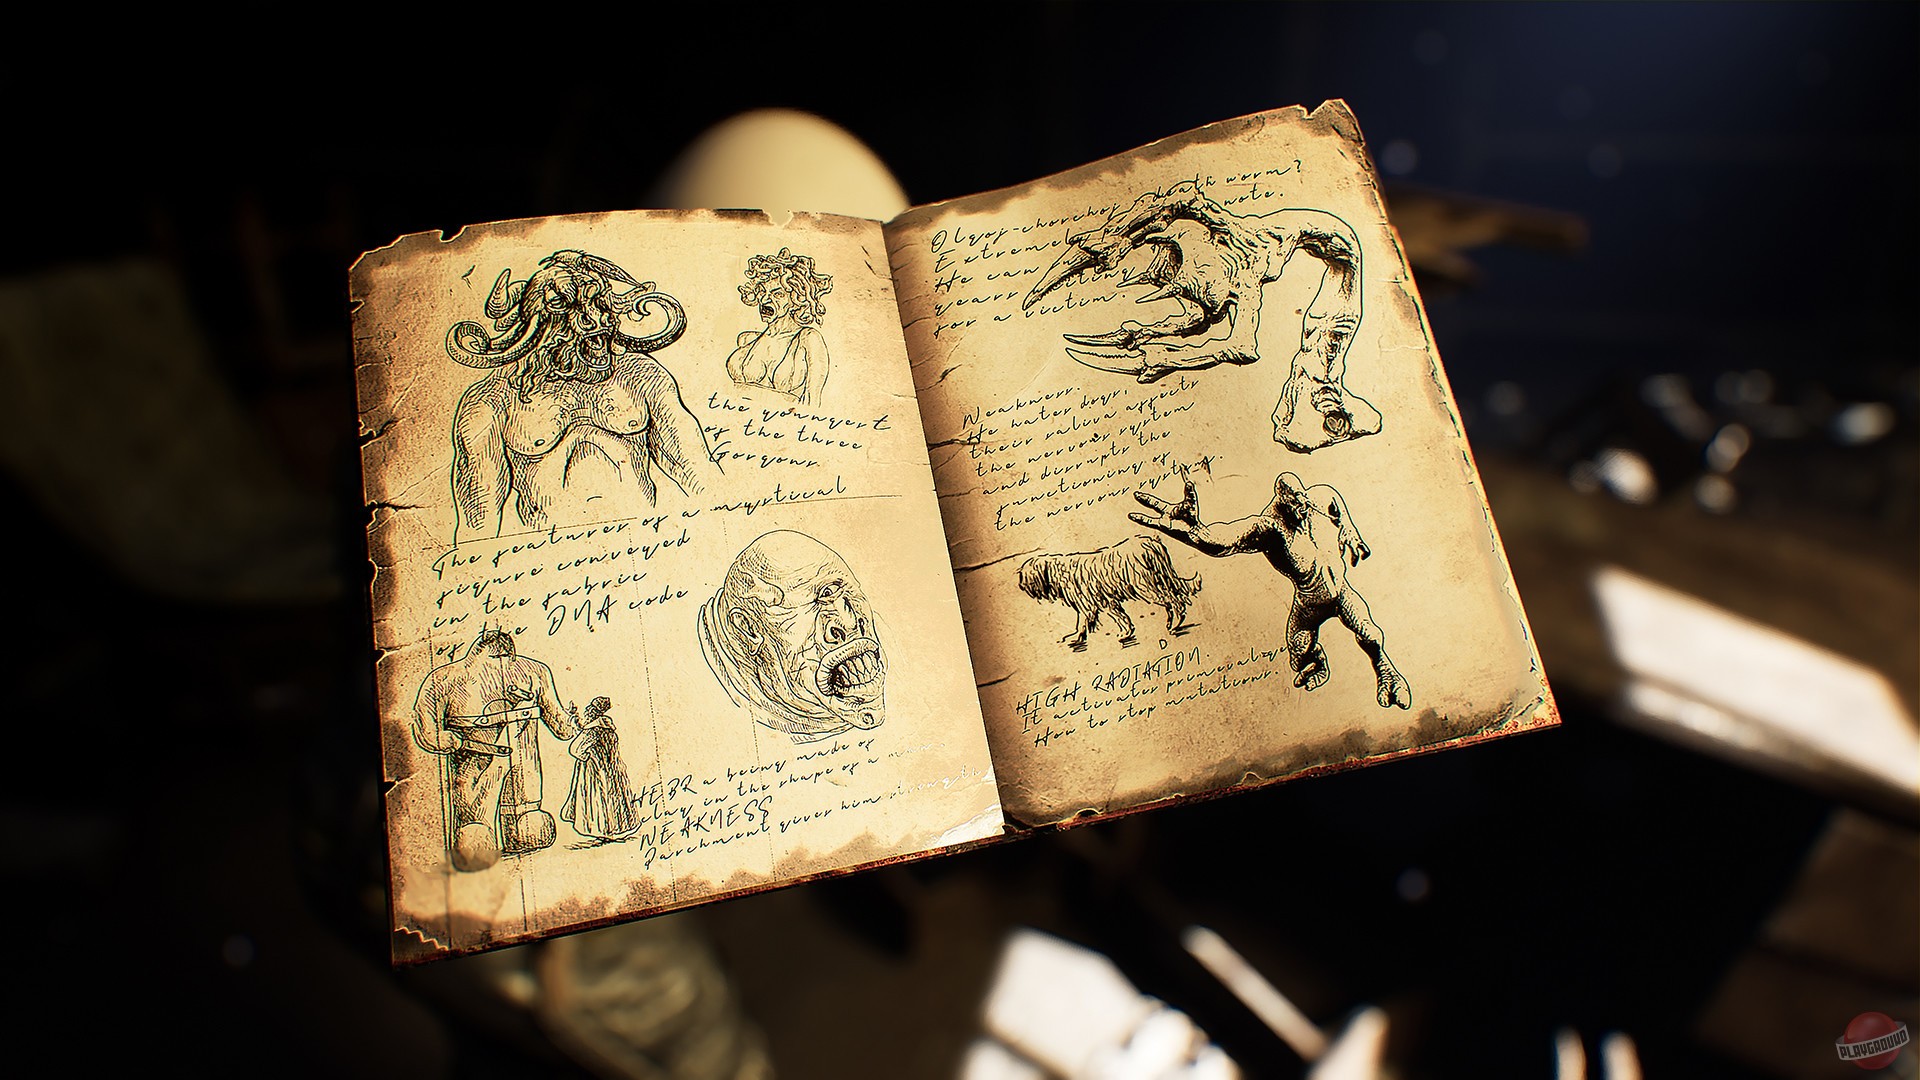 the youngest
of the three
Gorgons.
The features of a mystical
figure conveyed
in the fabric
of the DNA code
HEBR a being made of
clay in the shape of a
WEAKNESS
Parchment gives him strength
Olgoj-chorchoj - death worm?
Extremely note.
He can
years waiting
for a victim.
Weakness.
He hates dogs,
their saliva affects
the nervous system
and disrupts the
functioning of
the nervous system.
D
HIGH RADIATION.
It activates primeval
How to stop mutations.
PLAYGROUND